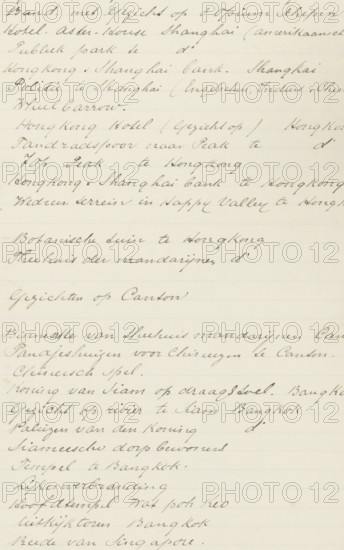 Bund, met gezicht op Opium Schepen
Hotel. Astor-House Shanghai (amerikaansch
Publiek park te d°
Hongkong-Shanghai bank. Shanghai
Politie te Shanghai (
Wheel barrow.
Hongkong Hotel (gezicht op) Hongko
Tandradspoor naar Peak te d°
Top Peak te Hongkong
Hongkong-Shanghai bank te Hongkong
Wedren terrein in Happy Valley te Hongk
Botanische tuin te Hongkong
Theehuis der mandarijnen d°
Gezichten op Canton
van Theehuis mandarijnen Can
voor Chineezen te Canton.
Chineesch spel.
Koning van Siam op draagstoel. Bangko
Gezicht op rivier te Siam Bangkok
Paleizen van den Koning d°
Siameesche dorpbewoners
Tempel te Bangkok.
Lijkverbranding
Hoofdtempel Wat poh
Uitkijktoren Bangkok
Reede van Singapore.
PHOTO 12